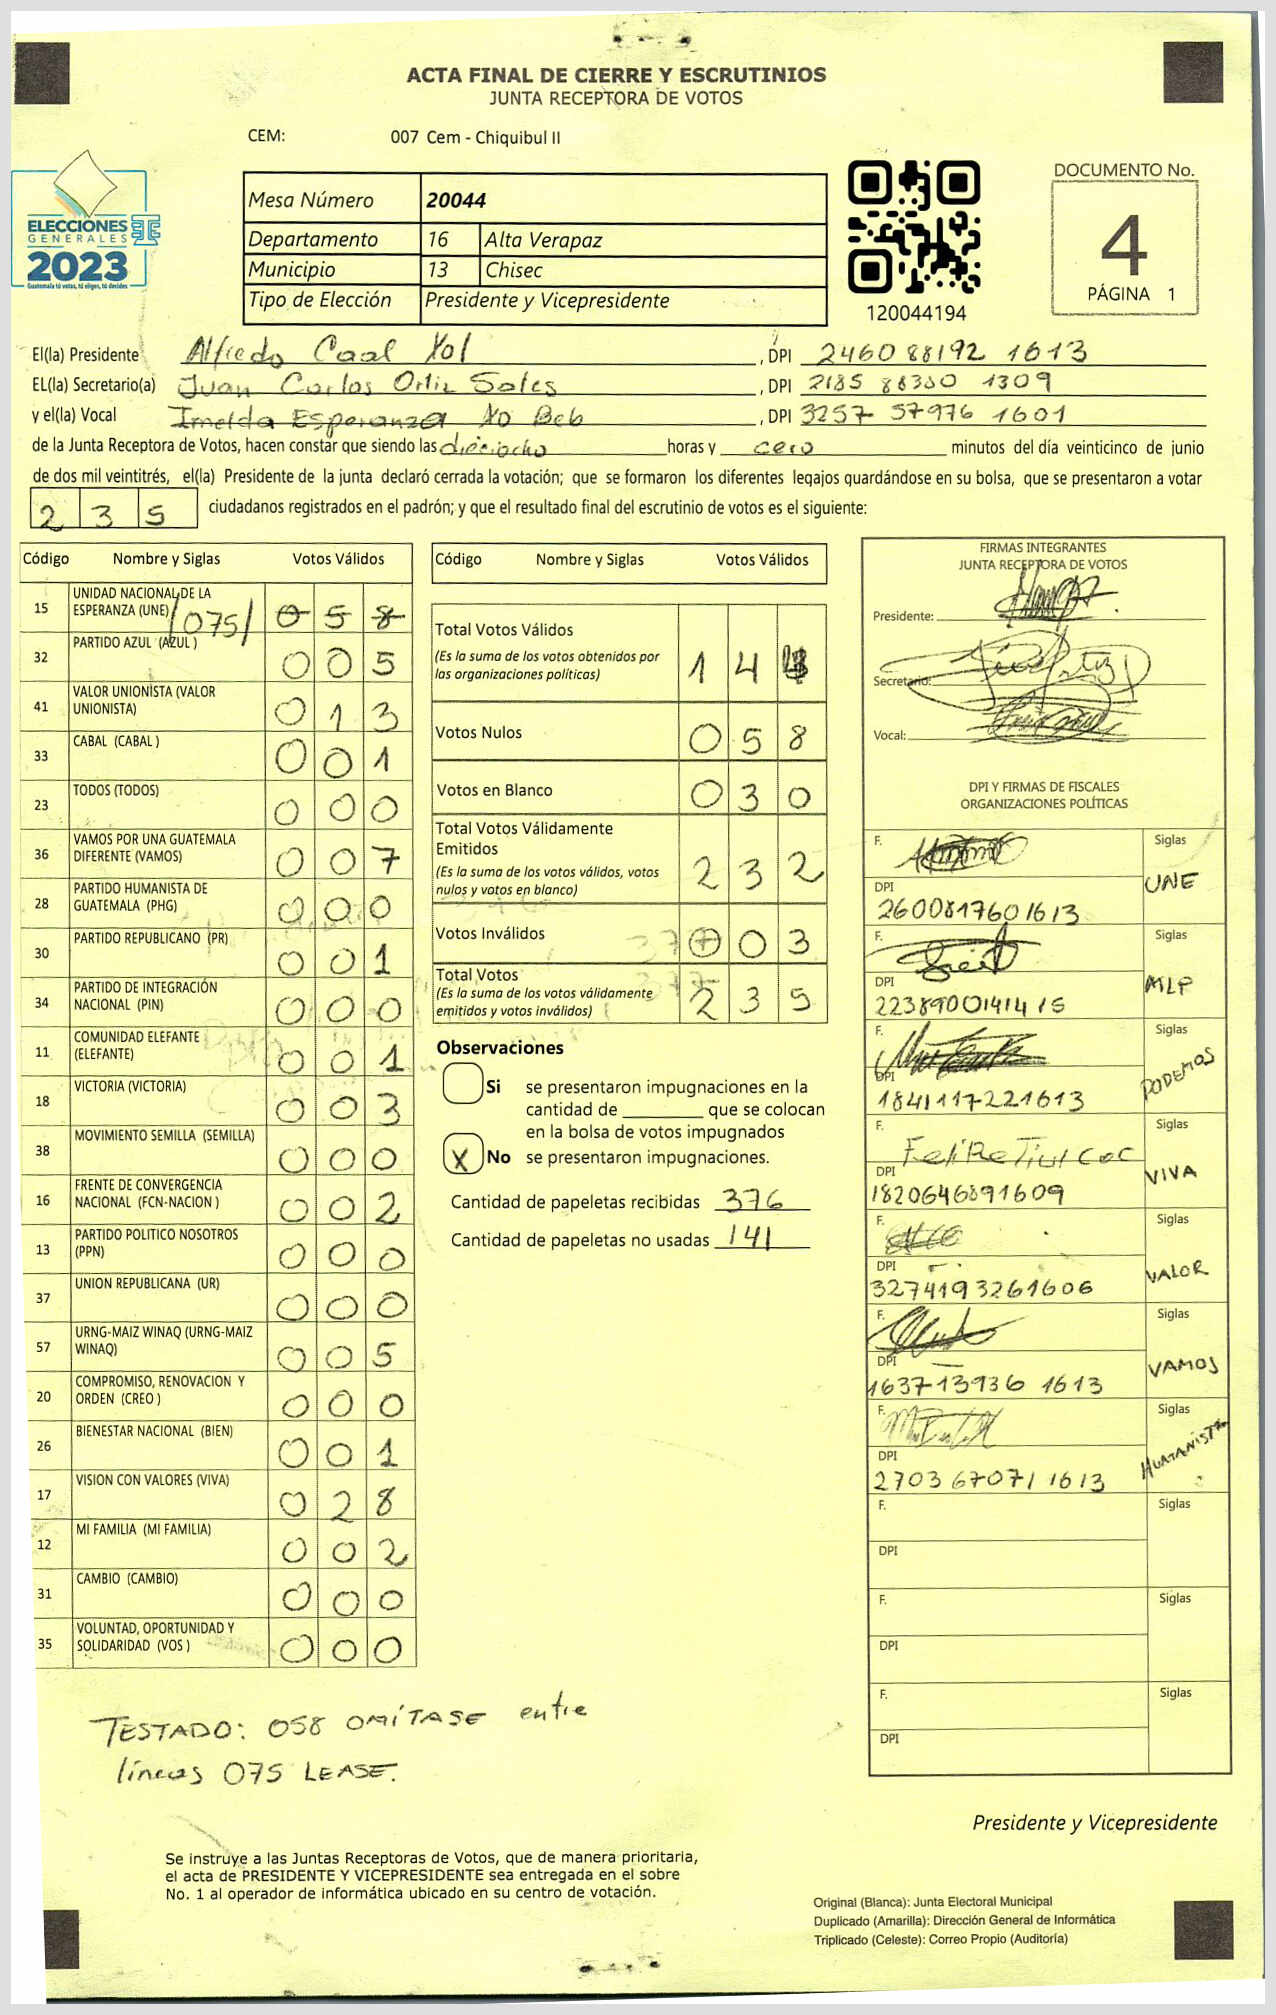 ACTA FINAL DE CIERRE Y ESCRUTINIOS
JUNTA RECEPTORA DE VOTOS
CEM: 007 Cem - Chiquibul II
ELECCIONES
GENERALES
2023
Guatemala tú votas, tú eliges, tú decides
Mesa Número 20044
Departamento 16 Alta Verapaz
Municipio 13 Chisec
Tipo de Elección Presidente y Vicepresidente
120044194
DOCUMENTO No.
4
PÁGINA 1
El(la) Presidente Alfredo Caal Xol , DPI 2460 88192 1613
EL(la) Secretario(a) Juan Carlos Ortiz Sales , DPI 2185 88380 1309
y el(la) Vocal Imelda Esperanza Xo Beb , DPI 3257 57976 1601
de la Junta Receptora de Votos, hacen constar que siendo las dieciocho horas y cero minutos del día veinticinco de junio
de dos mil veintitrés, el(la) Presidente de la junta declaró cerrada la votación; que se formaron los diferentes legajos guardándose en su bolsa, que se presentaron a votar
235 ciudadanos registrados en el padrón; y que el resultado final del escrutinio de votos es el siguiente:
Código Nombre y Siglas Votos Válidos
15 UNIDAD NACIONAL DE LA ESPERANZA (UNE) /075/ 0 5 8
32 PARTIDO AZUL (AZUL ) 0 0 5
41 VALOR UNIONISTA (VALOR UNIONISTA) 0 1 3
33 CABAL (CABAL ) 0 0 1
23 TODOS (TODOS) 0 0 0
36 VAMOS POR UNA GUATEMALA DIFERENTE (VAMOS) 0 0 7
28 PARTIDO HUMANISTA DE GUATEMALA (PHG) 0 0 0
30 PARTIDO REPUBLICANO (PR) 0 0 1
34 PARTIDO DE INTEGRACIÓN NACIONAL (PIN) 0 0 0
11 COMUNIDAD ELEFANTE (ELEFANTE) 0 0 1
18 VICTORIA (VICTORIA) 0 0 3
38 MOVIMIENTO SEMILLA (SEMILLA) 0 0 0
16 FRENTE DE CONVERGENCIA NACIONAL (FCN-NACION ) 0 0 2
13 PARTIDO POLITICO NOSOTROS (PPN) 0 0 0
37 UNION REPUBLICANA (UR) 0 0 0
57 URNG-MAIZ WINAQ (URNG-MAIZ WINAQ) 0 0 5
20 COMPROMISO, RENOVACION Y ORDEN (CREO ) 0 0 0
26 BIENESTAR NACIONAL (BIEN) 0 0 1
17 VISION CON VALORES (VIVA) 0 2 8
12 MI FAMILIA (MI FAMILIA) 0 0 2
31 CAMBIO (CAMBIO) 0 0 0
35 VOLUNTAD, OPORTUNIDAD Y SOLIDARIDAD (VOS ) 0 0 0
TESTADO: 058 OMÍTASE entre
líneas 075 LEASE.
Código Nombre y Siglas Votos Válidos
Total Votos Válidos 1 4 4
(Es la suma de los votos obtenidos por
las organizaciones políticas)
Votos Nulos 0 5 8
Votos en Blanco 0 3 0
Total Votos Válidamente
Emitidos 2 3 2
(Es la suma de los votos válidos, votos
nulos y votos en blanco)
Votos Inválidos 0 0 3
Total Votos 2 3 5
(Es la suma de los votos válidamente
emitidos y votos inválidos)
Observaciones
Si se presentaron impugnaciones en la
cantidad de ________ que se colocan
en la bolsa de votos impugnados
X No se presentaron impugnaciones.
Cantidad de papeletas recibidas 376
Cantidad de papeletas no usadas 141
FIRMAS INTEGRANTES
JUNTA RECEPTORA DE VOTOS
Presidente:
Secretario:
Vocal:
DPI Y FIRMAS DE FISCALES
ORGANIZACIONES POLÍTICAS
F. Siglas UNE
DPI 2600817601613
F. Siglas MLP
DPI 2238900141415
F. Siglas PODEMOS
DPI 1841117221613
F. Felipe Tiul Coc Siglas VIVA
DPI 1820646891609
F. Siglas VALOR
DPI 3274193261606
F. Siglas VAMOS
DPI 1637 13936 1613
F. Siglas HUMANISTA
DPI 2703 67071 1613
F. Siglas
DPI
F. Siglas
DPI
F. Siglas
DPI
Presidente y Vicepresidente
Se instruye a las Juntas Receptoras de Votos, que de manera prioritaria,
el acta de PRESIDENTE Y VICEPRESIDENTE sea entregada en el sobre
No. 1 al operador de informática ubicado en su centro de votación.
Original (Blanca): Junta Electoral Municipal
Duplicado (Amarilla): Dirección General de Informática
Triplicado (Celeste): Correo Propio (Auditoría)